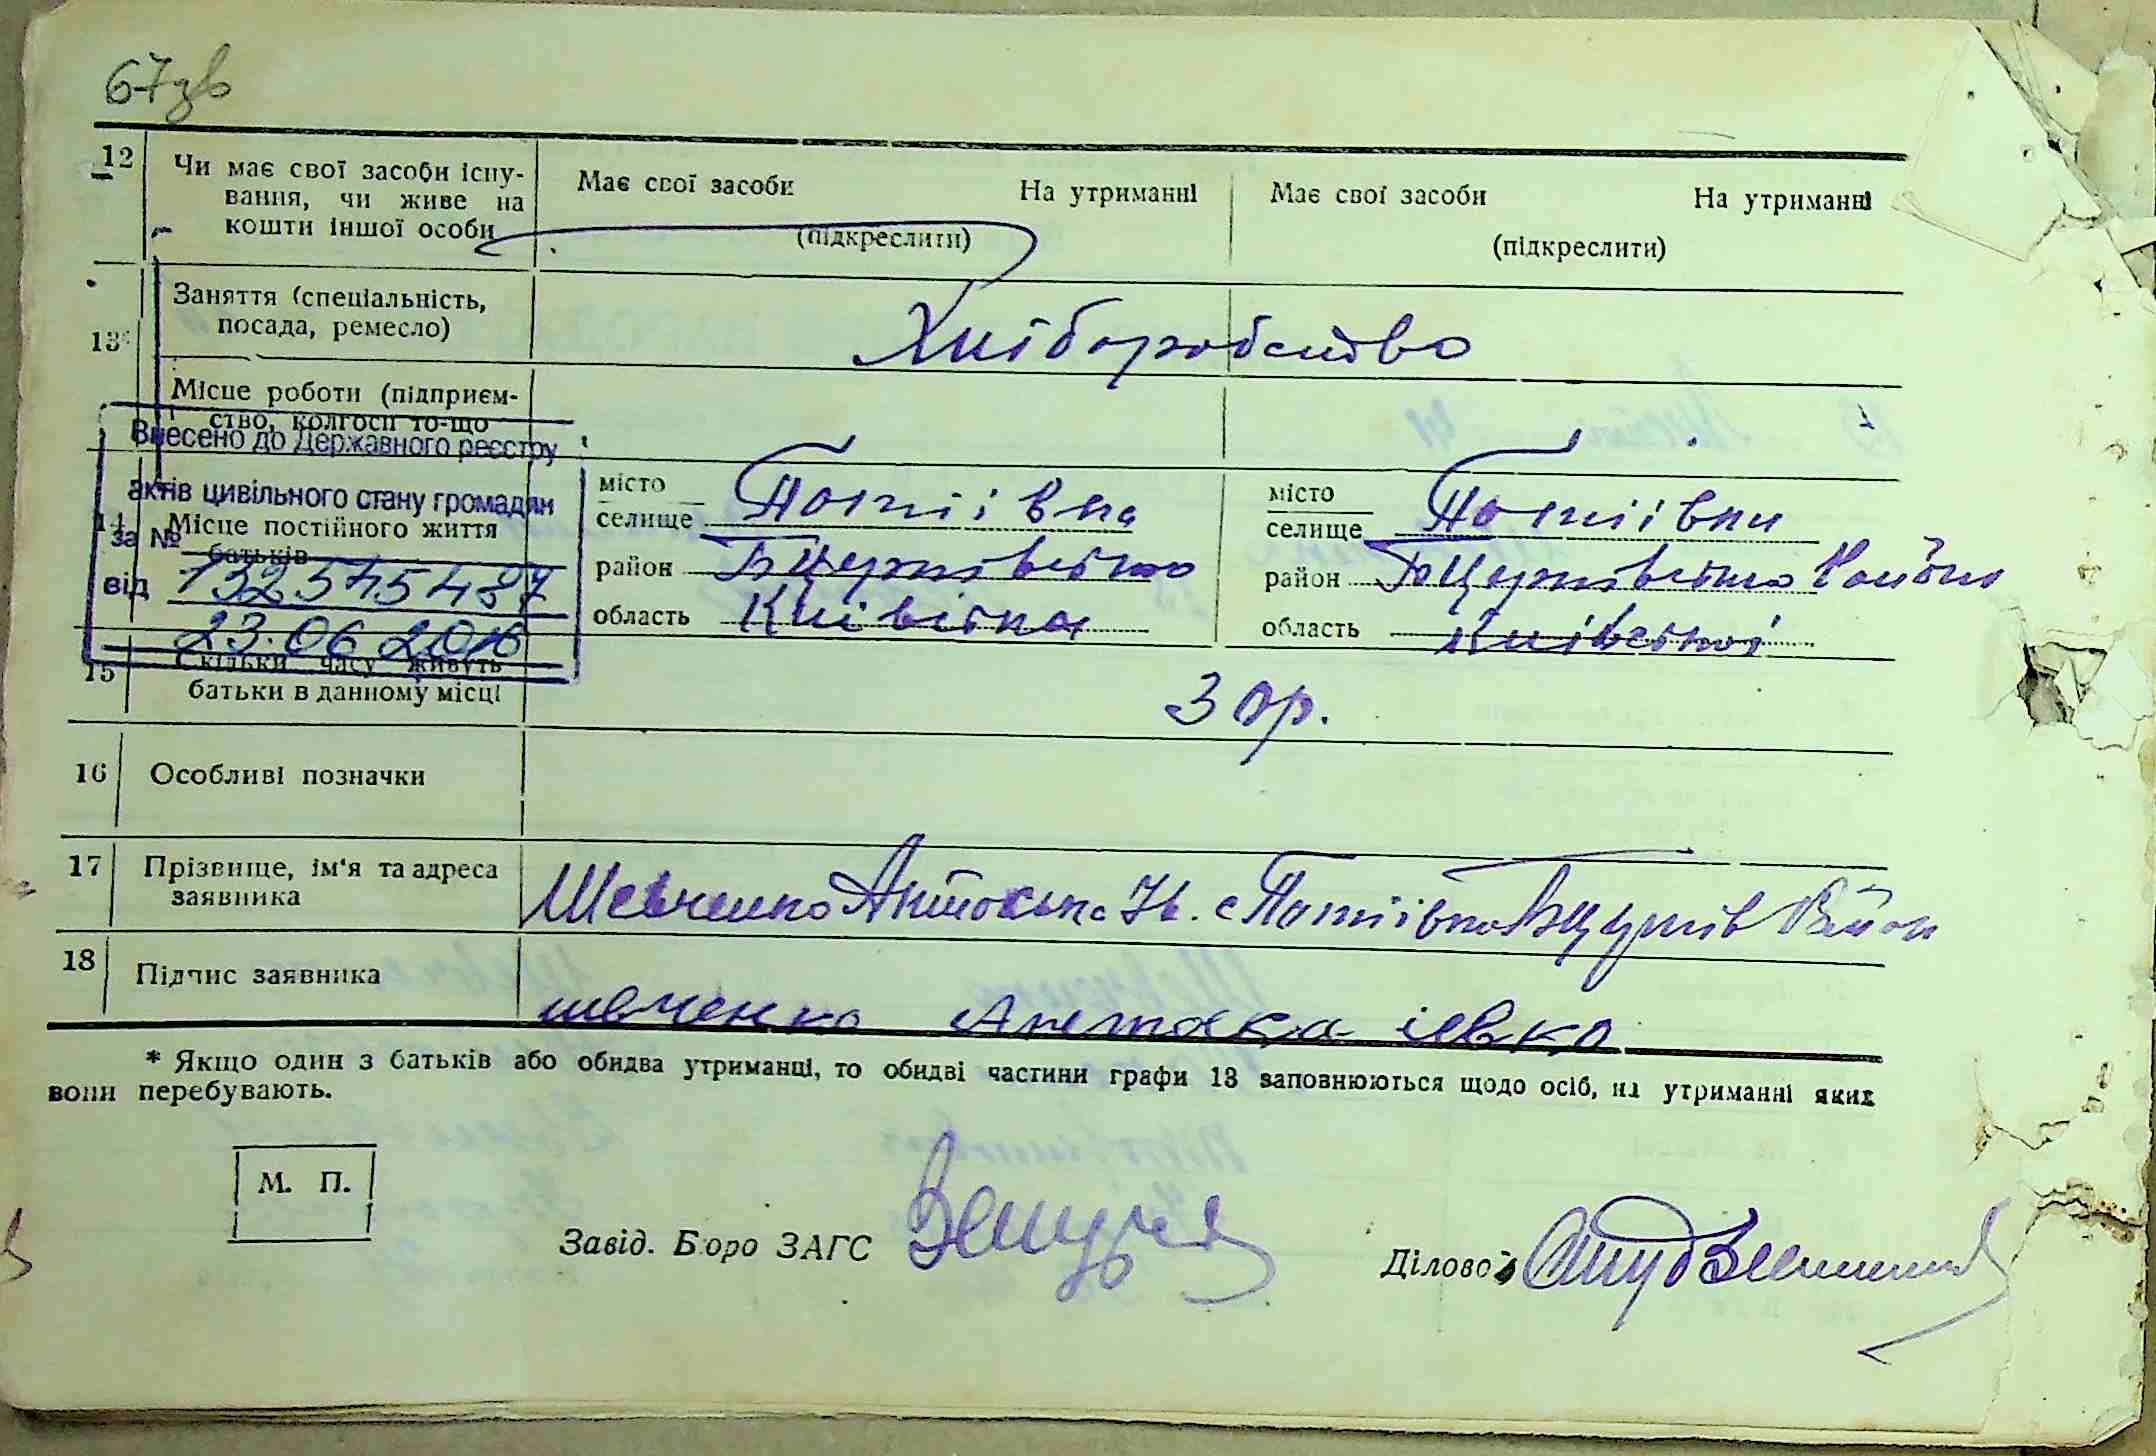 67зв
12 Чи має свої засоби існу-
вання, чи живе на
кошти іншої особи
Має свої засоби На утриманні
(підкреслити)
Має свої засоби На утриманні
(підкреслити)
13* Заняття (спеціальність,
посада, ремесло)
Хліборобство
Місце роботи (підприєм-
ство, колгосп то-що
Внесено до Державного реєстру
актів цивільного стану громадян
за №
від 132545487
23.06 2016
14 Місце постійного життя
батьків
місто
селище Потіївка
район БЦерківсько
область Київська
місто
селище Потіївки
район БЦерківсько Району
область Київської
15 Скільки часу живуть
батьки в данному місці
З ор.
16 Особливі позначки
17 Прізвище, ім'я та адреса
заявника
Шевченко Антоська Ів. с Потіївка БЦерків Район
18 Підпис заявника
шевченко
* Якщо один з батьків або обидва утриманці, то обидві частини графи 13 заповнюються щодо осіб, на утриманні яких
вони перебувають.
М. П.
Завід. Бюро ЗАГС
Діловод